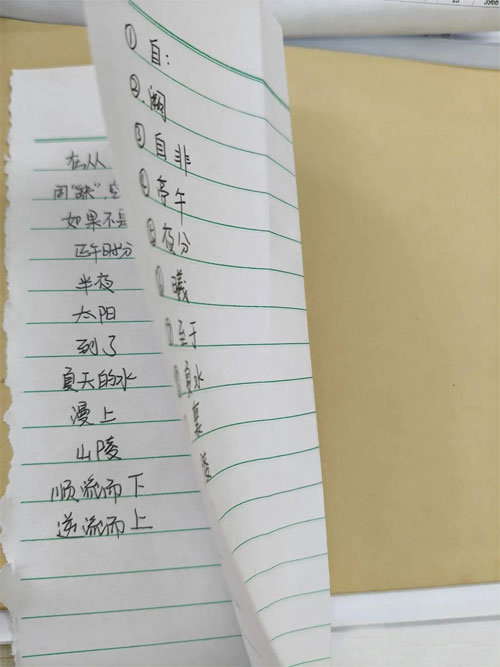 ① 自：
② 阙
③ 自非
④ 亭午
⑤ 夜分
曦
至于
夏水
襄
陵
在从
同“缺”，
如果不是
正午时分
半夜
太阳
到了
夏天的水
漫上
山陵
顺流而下
逆流而上